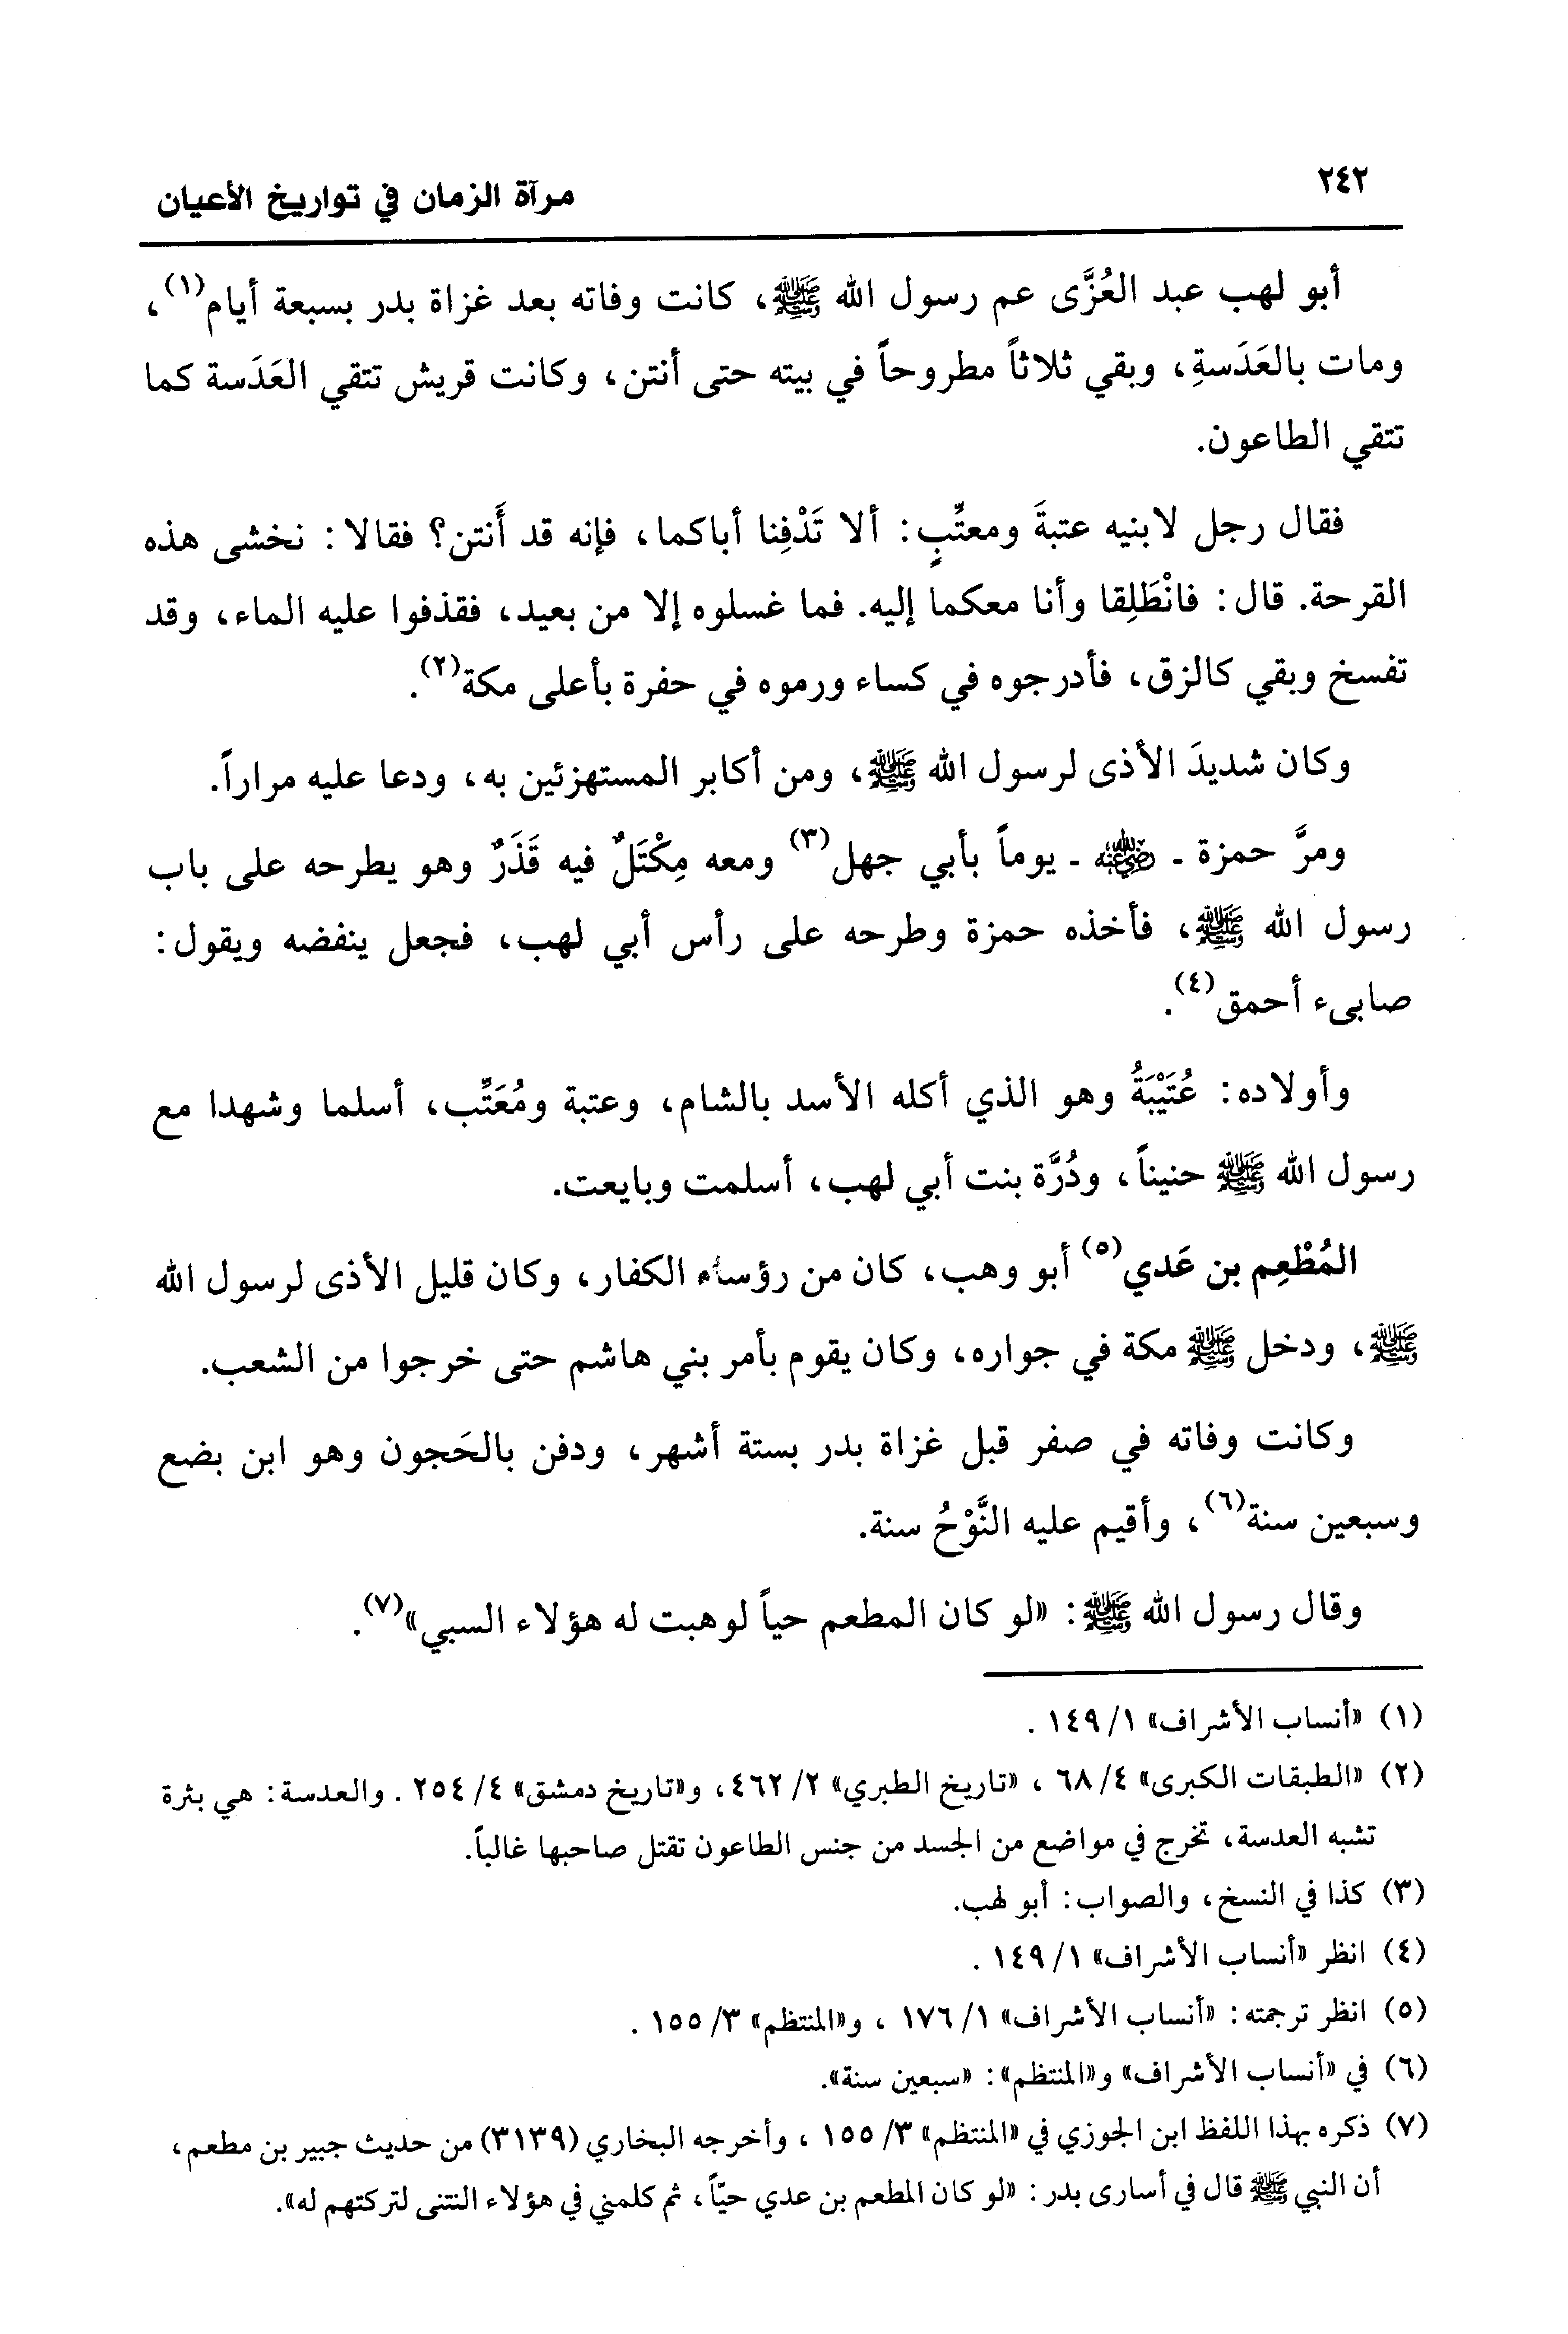 ٢٤٢
مرآة الزمان في تواريخ الأعيان
أبو لهب عبد العُزَّى عم رسول الله ﷺ، كانت وفاته بعد غزاة بدر بسبعة أيام(١)،
ومات بالعَدَسةِ، وبقي ثلاثاً مطروحاً في بيته حتى أنتن، وكانت قريش تتقي العَدَسة كما
تتقي الطاعون.
فقال رجل لابنيه عتبةَ ومعتِّبٍ: ألا تَدْفِنا أباكما، فإنه قد أَنتن؟ فقالا: نخشى هذه
القرحة. قال: فانْطَلِقا وأنا معكما إليه. فما غسلوه إلا من بعيد، فقذفوا عليه الماء، وقد
تفسخ وبقي كالزق، فأدرجوه في كساء ورموه في حفرة بأعلى مكة(٢).
وكان شديدَ الأذى لرسول الله ﷺ، ومن أكابر المستهزئين به، ودعا عليه مراراً.
ومرَّ حمزة - رضي الله عنه - يوماً بأبي جهل(٣) ومعه مِكْتَلٌ فيه قَذَرٌ وهو يطرحه على باب
رسول الله ﷺ، فأخذه حمزة وطرحه على رأس أبي لهب، فجعل ينفضه ويقول:
صابىء أحمق(٤).
وأولاده: عُتَيْبَةُ وهو الذي أكله الأسد بالشام، وعتبة ومُعَتِّب، أسلما وشهدا مع
رسول الله ﷺ حنيناً، ودُرَّة بنت أبي لهب، أسلمت وبايعت.
المُطْعِم بن عَدي(٥) أبو وهب، كان من رؤساء الكفار، وكان قليل الأذى لرسول الله
ﷺ، ودخل ﷺ مكة في جواره، وكان يقوم بأمر بني هاشم حتى خرجوا من الشعب.
وكانت وفاته في صفر قبل غزاة بدر بستة أشهر، ودفن بالحَجون وهو ابن بضع
وسبعين سنة(٦)، وأقيم عليه النَّوْحُ سنة.
وقال رسول الله ﷺ: «لو كان المطعم حياً لوهبت له هؤلاء السبي»(٧).
(١) «أنساب الأشراف» ١/ ١٤٩ .
(٢) «الطبقات الكبرى» ٤/ ٦٨ ، «تاريخ الطبري» ٢/ ٤٦٢، و«تاريخ دمشق» ٤/ ٢٥٤ . والعدسة: هي بثرة
تشبه العدسة، تخرج في مواضع من الجسد من جنس الطاعون تقتل صاحبها غالباً.
(٣) كذا في النسخ، والصواب: أبو لهب.
(٤) انظر «أنساب الأشراف» ١/ ١٤٩ .
(٥) انظر ترجمته: «أنساب الأشراف» ١/ ١٧٦ ، و«المنتظم» ٣/ ١٥٥ .
(٦) في «أنساب الأشراف» و«المنتظم»: «سبعين سنة».
(٧) ذكره بهذا اللفظ ابن الجوزي في «المنتظم» ٣/ ١٥٥ ، وأخرجه البخاري (٣١٣٩) من حديث جبير بن مطعم،
أن النبي ﷺ قال في أسارى بدر: «لو كان المطعم بن عدي حيّاً، ثم كلمني في هؤلاء النتنى لتركتهم له».